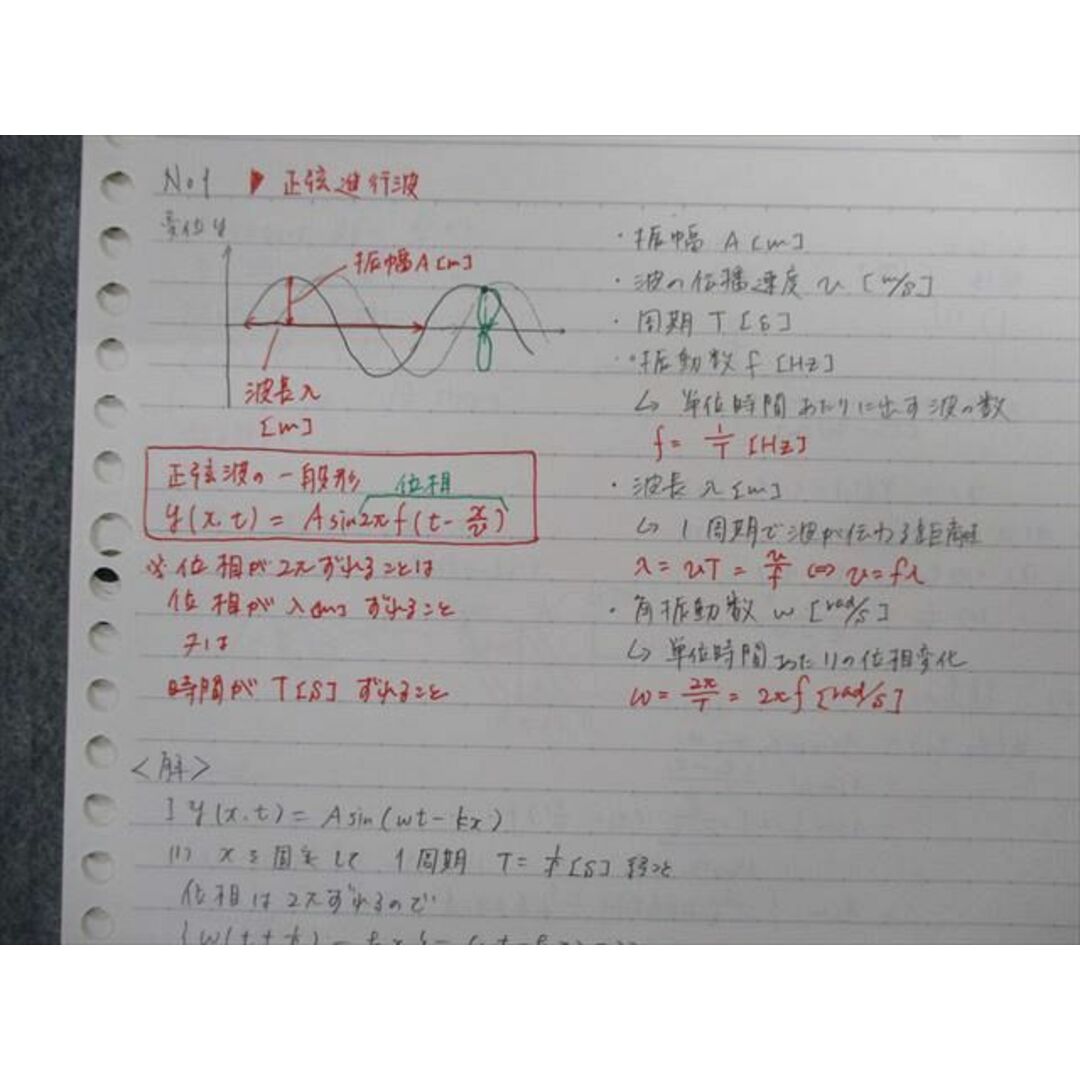 No1 ▶ 正弦進行波
変位 y
振幅A[m]
波長λ
[m]
正弦波の一般形 位相
y(x,t) = A sin2πf(t - x/v)
※位相が2πずれることは
位相がλ[m]ずれること
又は
時間がT[s]ずれること
・振幅 A[m]
・波の伝播速度 v [m/s]
・周期 T[s]
・振動数 f [Hz]
↳ 単位時間あたりに出す波の数
f = 1/T [Hz]
・波長 λ[m]
↳ 1周期で波が伝わる距離
λ = vT = v/f ⇔ v = fλ
・角振動数 ω [rad/s]
↳ 単位時間あたりの位相変化
ω = 2π/T = 2πf [rad/s]
<解>
I y(x,t) = A sin(ωt - kx)
(1) xを固定して 1周期 T = 1/f [s]
位相は2πずれるので